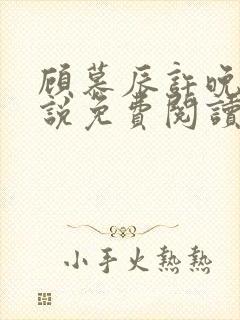 顾慕辰許晚
説免費閱讀
小手火熱熱